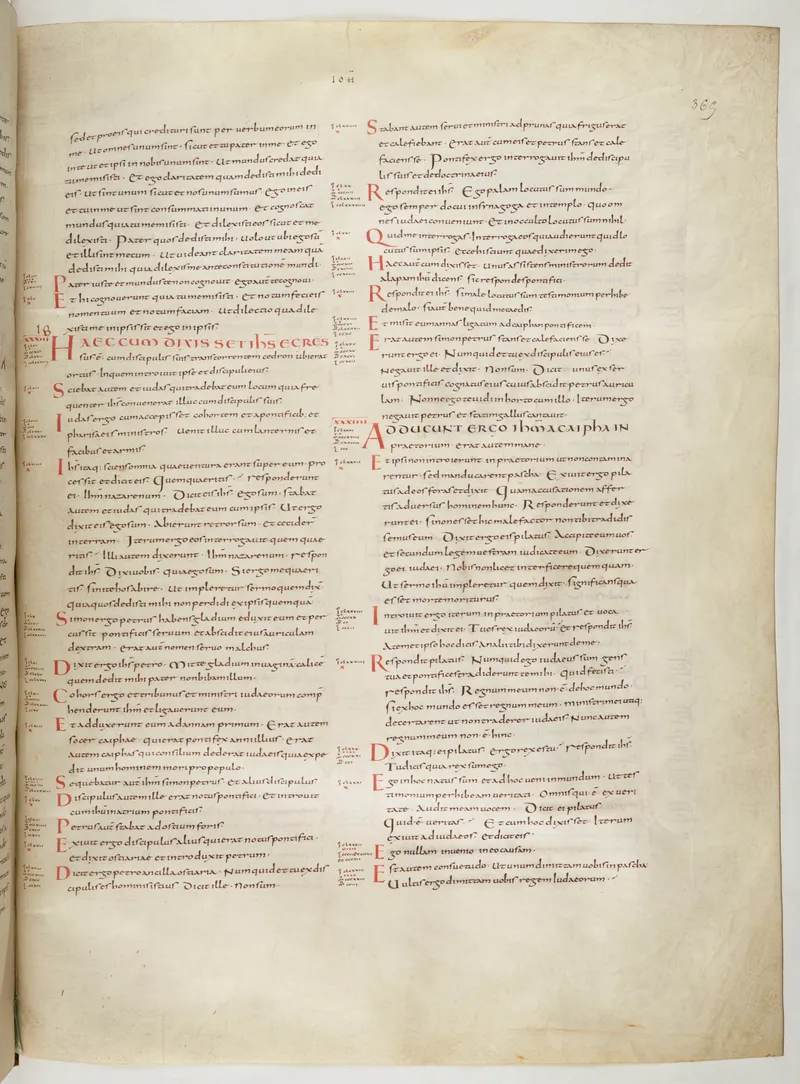 IOH
369
sed et pro eis qui credituri sunt per uerbum eorum in
me · Ut omnes unum sint · sicut et tu pater in me · Et ego
in te ut et ipsi in nobis unum sint · Ut mundus credat quia
tu me misisti · Et ego claritatem quam dedisti mihi dedi
eis · Ut sint unum sicut et nos unum sumus · Ego in eis
et tu in me ut sint consummati in unum · Et cognoscat
mundus quia tu me misisti · Et dilexisti eos sicut et me
dilexisti · Pater quos dedisti mihi · Uolo ut ubi ego sū
et illi sint mecum · Ut uideant claritatem meam quā
dedisti mihi quia dilexisti me ante constitutionē mundi
Pater iuste et mundus te non cognouit · ego aut te cognoui ·
Et hi cognouerunt quia tu me misisti · Et notum feci eis
nomen tuum et notum faciam · Ut dilectio qua dile
18 xisti me in ipsis sit et ego in ipsis ·
HAEC CUM DIXISSET IHS EGRES
sus ē · cum discipulis suis trans torrentem cedron ubi erat
ortus · In quem introiuit ipse et discipuli eius ·
Sciebat autem et iudas qui tradebat eum locum quia fre
quenter ihs conuenerat illuc cum discipulis suis ·
Iudas ergo cum accepisset cohortem et a pontificib; et
pharisaeis ministros · Uenit illuc cum lanternis et
facibus et armis ·
Ihs itaq; sciens omnia quae uentura erant super eum · pro
cessit et dicit eis · Quem quaeritis · Responderunt
ei · Ihm nazarenum · Dicit eis ihs · ego sum · stabat
autem et iudas qui tradebat eum cum ipsis · Ut ergo
dixit eis ego sum · Abierunt retrorsum · et cecider̄
in terram · Iterum ergo eos interrogauit quem quae
ritis · Illi autem dixerunt · Ihm nazarenum · respon
dit ihs · Dixi uobis quia ego sum · Si ergo me quaeri
tis sinite hos abire · Ut impleretur sermo quem dix̄
quia quos dedisti mihi non perdidi ex ipsis quemquā
Simon ergo petrus habens gladium eduxit eum et per
cussit pontificis seruum et abscidit eius auriculam
dextram · erat aut nomen seruo malchus ·
Dixit ergo ihs petro · Mitte gladium in uaginā · calicē
quem dedit mihi pater non bibam illum ·
Cohors ergo et tribunus et ministri iudaeorum comp̄
henderunt ihm et ligauerunt eum ·
Et adduxerunt eum ad annam primum · Erat autem
socer caiphae · qui erat pontifex anni illius · erat
autem caiphas qui consilium dederat iudaeis quia expe
dit unum hominem mori pro populo ·
Sequebatur aut ihm simon petrus · et alius discipulus
Discipulus autem ille erat notus pontifici · Et introiuit
cum ihu in atrium pontificis ·
Petrus aut stabat ad ostium foris ·
Exiuit ergo discipulus alius qui erat notus pontifici ·
et dixit ostiariae et introduxit petrum ·
Dicit ergo petro ancilla ostiaria · Numquid et tu ex dis
cipulis es hominis istius · Dicit ille · Non sum ·
Stabant autem serui et ministri ad prunas quia frigus erat
et calefiebant · Erat aut cum eis et petrus stans et cale
faciens se · Pontifex ergo interrogauit ihm de discipu
lis suis et de doctrina eius ·
Respondit ei ihs · Ego palam locutus sum mundo ·
ego semper docui in synagoga et in templo · Quo om
nes iudaei conueniunt · Et in occulto locutus sum nihil ·
Quid me interrogas · Interroga eos qui audierunt quid lo
cutus sum ipsis · Ecce hi sciunt quae dixerim ego ·
Haec aut cum dixisset · Unus assistens ministrorum dedit
alapam ihu dicens · sic respondes pontifici ·
Respondit ei ihs · si male locutus sum testimonium perhibe
de malo · si aut bene quid me caedis ·
Et misit eum annas ligatum ad caiphan pontificem ·
Erat autem simon petrus stans et calefaciens se · Dixe
runt ergo ei · Numquid et tu ex discipulis eius es ·
Negauit ille et dixit · Non sum · Dicit unus ex ser
uis pontificis cognatus eius cuius abscidit petrus auricu
lam · Nonne ego te uidi in horto cum illo · Iterum ergo
negauit petrus et statim gallus cantauit ·
ADDUCUNT ERGO IHM A CAIPHA IN
praetorium · erat autem mane ·
Et ipsi non introierunt in praetorium ut non contamina
rentur · sed manducarent pascha · Exiuit ergo pila
tus ad eos foras et dixit · Quam accusationem affer
tis aduersus hominem hunc · Responderunt et dixe
runt ei · si non esset hic malefactor non tibi tradidis
semus eum · Dixit ergo eis pilatus · Accipite eum uos
et secundum legem uestram iudicate eum · Dixerunt er
go ei iudaei · Nobis non licet interficere quemquam ·
Ut sermo ihu impleretur quem dixit · significans qua
esset morte moriturus ·
Introiuit ergo iterum in praetorium pilatus et uoca
uit ihm et dixit ei · Tu es rex iudaeorū · Et respondit ihs
A temet ipso hoc dicis · An alii tibi dixerunt de me ·
Respondit pilatus · Numquid ego iudaeus sum · gens
tua et pontifices tradiderunt te mihi · Quid fecisti ·
respondit ihs · Regnum meum non ē de hoc mundo ·
si ex hoc mundo esset regnum meum · ministri mei utiq;
decertarent ut non traderer iudaeis · Nunc autem
regnum meum non ē hinc ·
Dixit itaq; ei pilatus · ergo rex es tu · respondit ihs
Tu dicis quia rex sum ego ·
Ego in hoc natus sum et ad hoc ueni in mundum · Ut tes
timonium perhibeam ueritati · Omnis qui ē ex ueri
tate · Audit meam uocem · Dicit ei pilatus
Quid ē ueritas · Et cum hoc dixisset · Iterum
exiuit ad iudaeos et dicit eis ·
Ego nullam inuenio in eo causam ·
Est autem consuetudo · Ut unum dimittam uobis in pascha
Uultis ergo dimittam uobis regem iudaeorum ·